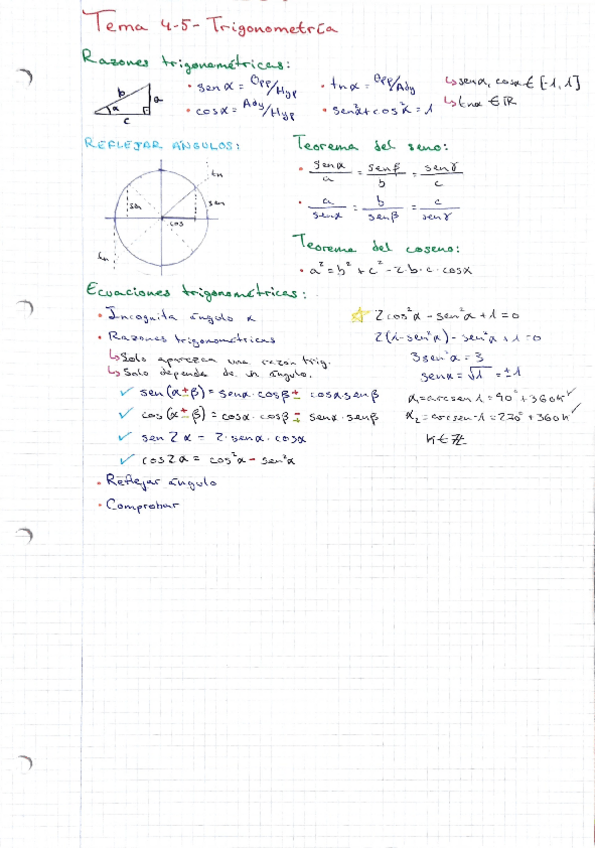 Tema 4-5 - Trigonometría
Razones trigonométricas:
b a α c
• sen α = Opp/Hyp
• cos α = Ady/Hyp
• tn α = Opp/Ady
• sen²α + cos²α = 1
↳ sen α, cos α ∈ [-1, 1]
↳ tn α ∈ ℝ
REFLEJAR ÁNGULOS:
tn
sen
sen
cos
tn
Teorema del seno:
• sen α / a = sen β / b = sen γ / c
• a / sen α = b / sen β = c / sen γ
Teorema del coseno:
• a² = b² + c² - 2·b·c·cos α
Ecuaciones trigonométricas:
• Incognita ángulo α
• Razones trigonométricas
↳ Solo aparezca una razón trig.
↳ Solo depende de un ángulo.
✓ sen(α ± β) = sen α · cos β ± cos α sen β
✓ cos(α ± β) = cos α · cos β ∓ sen α · sen β
✓ sen 2α = 2 · sen α · cos α
✓ cos 2α = cos²α - sen²α
• Reflejar ángulo
• Comprobar
☆ 2cos²α - sen²α + 1 = 0
2(1 - sen²α) - sen²α + 1 = 0
3 sen²α = 3
sen α = √1 = ±1
α₁ = arcsen 1 = 90° + 360K ✓
α₂ = arcsen -1 = 270° + 360K ✓
K ∈ ℤ